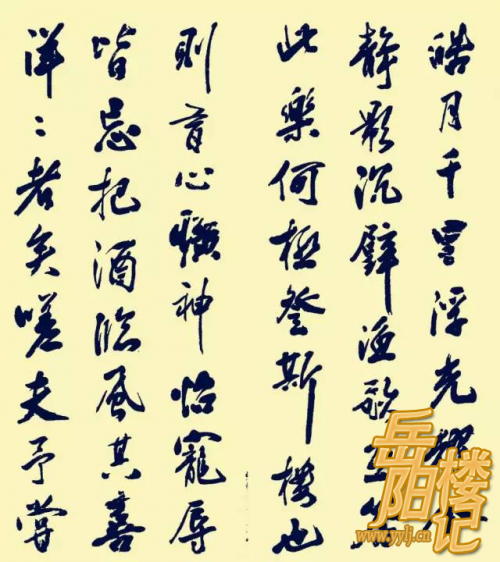 皓月千里浮光耀金
静影沉璧渔歌互答
此樂何極登斯樓也
則有心曠神怡寵辱
皆忘把酒臨風其喜
洋〻者矣嗟夫予嘗
岳阳楼记
www.yylj.cn